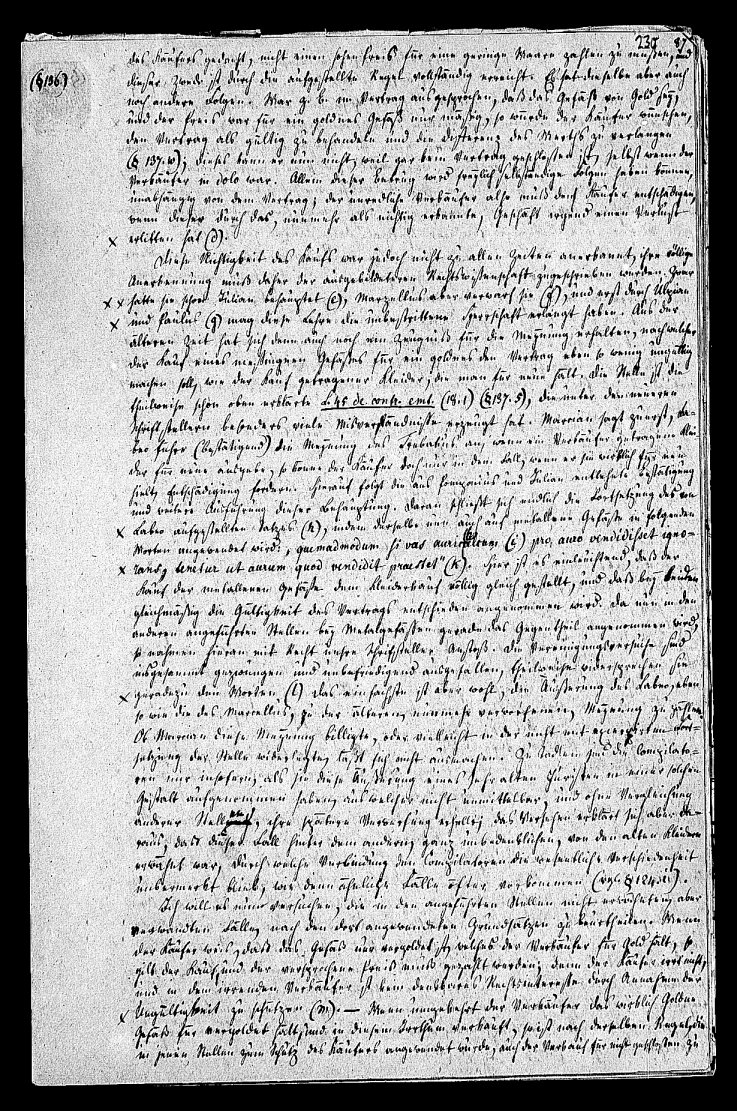 239 87
des Käufers gedacht, nicht einen hohen Preis für eine geringe Waare zahlen zu müssen, und
(§136) dieser Zweck ist durch die aufgestellte Regel vollständig erreicht. Es hat dieselbe aber auch
noch andere Folgen. War z. B. im Vertrag ausgesprochen, daß das Gefäß von Gold sey,
und der Preis war für ein goldnes Gefäß nur mäßig, so würde der Käufer wünschen,
den Vertrag als gültig zu behandeln und die Differenz des Werths zu verlangen
(§ 137. w); dieses kann er nun nicht, weil gar kein Vertrag geschlossen ist, selbst wenn der
Verkäufer in dolo war. Allein dieser Betrug wird freylich selbstständige Folgen haben können,
unabhängig von dem Vertrag; der unredliche Verkäufer also muß dem Käufer entschädigen,
wenn dieser durch das, nunmehr als nichtig erkannte, Geschäft irgend einen Verlust
x erlitten hat (d).
Diese Nichtigkeit des Kaufs war jedoch nicht zu allen Zeiten anerkannt, ihre völlige
Anerkennung muß daher der ausgebildeteren Rechtswissenschaft zugeschrieben werden. Zwar
x x hatte sie schon Julian behauptet (e), Marcellus aber verwarf sie (f), und erst durch Ulpian
x und Paulus (g) mag diese Lehre die unbestrittene Herrschaft erlangt haben. Aus der
älteren Zeit hat sich denn auch noch ein Zeugniß für die Meynung erhalten, nach welcher
der Kauf eines messingnen Gefäßes für ein goldnes den Vertrag eben so wenig ungültig
machen soll, wie der Kauf getragener Kleider, die man für neue hält. Die Stelle ist die
theilweise schon oben erklärte L. 45 de contr. emt. (18. 1) (§ 137. s), die unter den neueren
Schriftstellern besonders viele Misverständnisse erzeugt hat. Marcian sagt zuerst, La-
beo führe (bestätigend) die Meynung des Trebatius an, wenn ein Verkäufer getragene Klei-
der für neue ausgebe, so könne der Käufer doch nur in dem Fall, wenn er sie wirklich für neu
hielt, Entschädigung fordern. Hierauf folgt die aus Pomponius und Julian entlehnte Bestätigung
und weitere Ausführung dieser Behauptung. Daran schließt sich endlich die Fortsetzung des von
x Labeo aufgestellten Satzes (h), indem derselbe nun auch auf metallene Gefäße in folgenden
Worten angewendet wird: „quemadmodum si vas aurichalcum (i) pro auro vendidisset igno-
x rans, tenetur ut aurum quod vendidit praestet“ (k). Hier ist es einleuchtend, daß der
Kauf der metallenen Gefäße dem Kleiderkauf völlig gleich gestellt, und daß bey beiden
gleichmäßig die Gültigkeit des Vertrags entschieden angenommen wird. Da nun in den
anderen angeführten Stellen bey Metalgefäßen gerade das Gegentheil angenommen wird,
so nahmen hieran mit Recht unsre Schriftsteller Anstoß. Die Vereinigungsversuche sind
insgesammt gezwungen und unbefriedigend ausgefallen, theilweise widersprechen sie
x geradezu den Worten (l). Das einfachste ist aber wohl, die Äußerung des Labeo, eben
so wie die des Marcellus, zu der älteren, nunmehr verworfenen, Meynung zu zählen.
Ob Marcian diese Meynung billigte, oder vielleicht in der nicht mit excerpirten Fort-
setzung der Stelle widerlegte, läßt sich nicht ausmachen. Zu tadeln sind die Compilato-
ren nur insofern, als sie diese Äußerung eines sehr alten Juristen in einer solchen
Gestalt aufgenommen haben, aus welcher nicht unmittelbar, und ohne Vergleichung
anderer Stellen, ihre spätere Verwerfung erhellt; das Versehen erklärt sich aber da-
raus, daß dieser Fall hinter dem anderen, ganz unbedenklichen, von den alten Kleidern
erwähnt war, durch welche Verbindung den Compilatoren die wesentliche Verschiedenheit
unbemerkt blieb, wie denn ähnliche Fälle öfter vorkommen (vgl. § 124. i).
Ich will es nun versuchen, die in den angeführten Stellen nicht erwähnten, aber
verwandten Fälle, nach den dort angewendeten Grundsätzen zu beurtheilen. Wenn
der Käufer weis, daß das Gefäß nur vergoldet ist, welches der Verkäufer für Gold hält, so
gilt der Kauf, und der versprochene Preis muß gezahlt werden; denn der Käufer irrt nicht,
und in dem irrenden Verkäufer ist kein denkbares Rechtsinteresse durch Annahme der
x Ungültigkeit zu schützen (m). — Wenn umgekehrt der Verkäufer das wirklich goldne
Gefäß für vergoldet hält, und in diesem Irrthum verkauft, so ist nach derselben Regel, die
in jenen Stellen zum Schutz des Käufers angewendet wurde, auch der Verkauf für nicht geschlossen zu